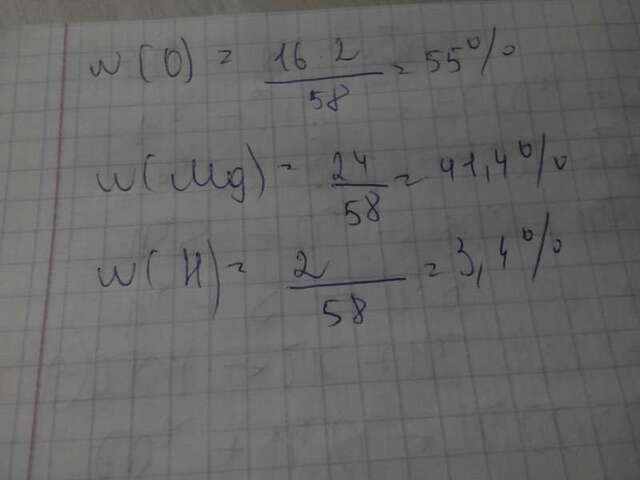 w(O) = 16·2/58 = 55%
w(Mg) = 24/58 = 41,4%
w(H) = 2/58 = 3,4%